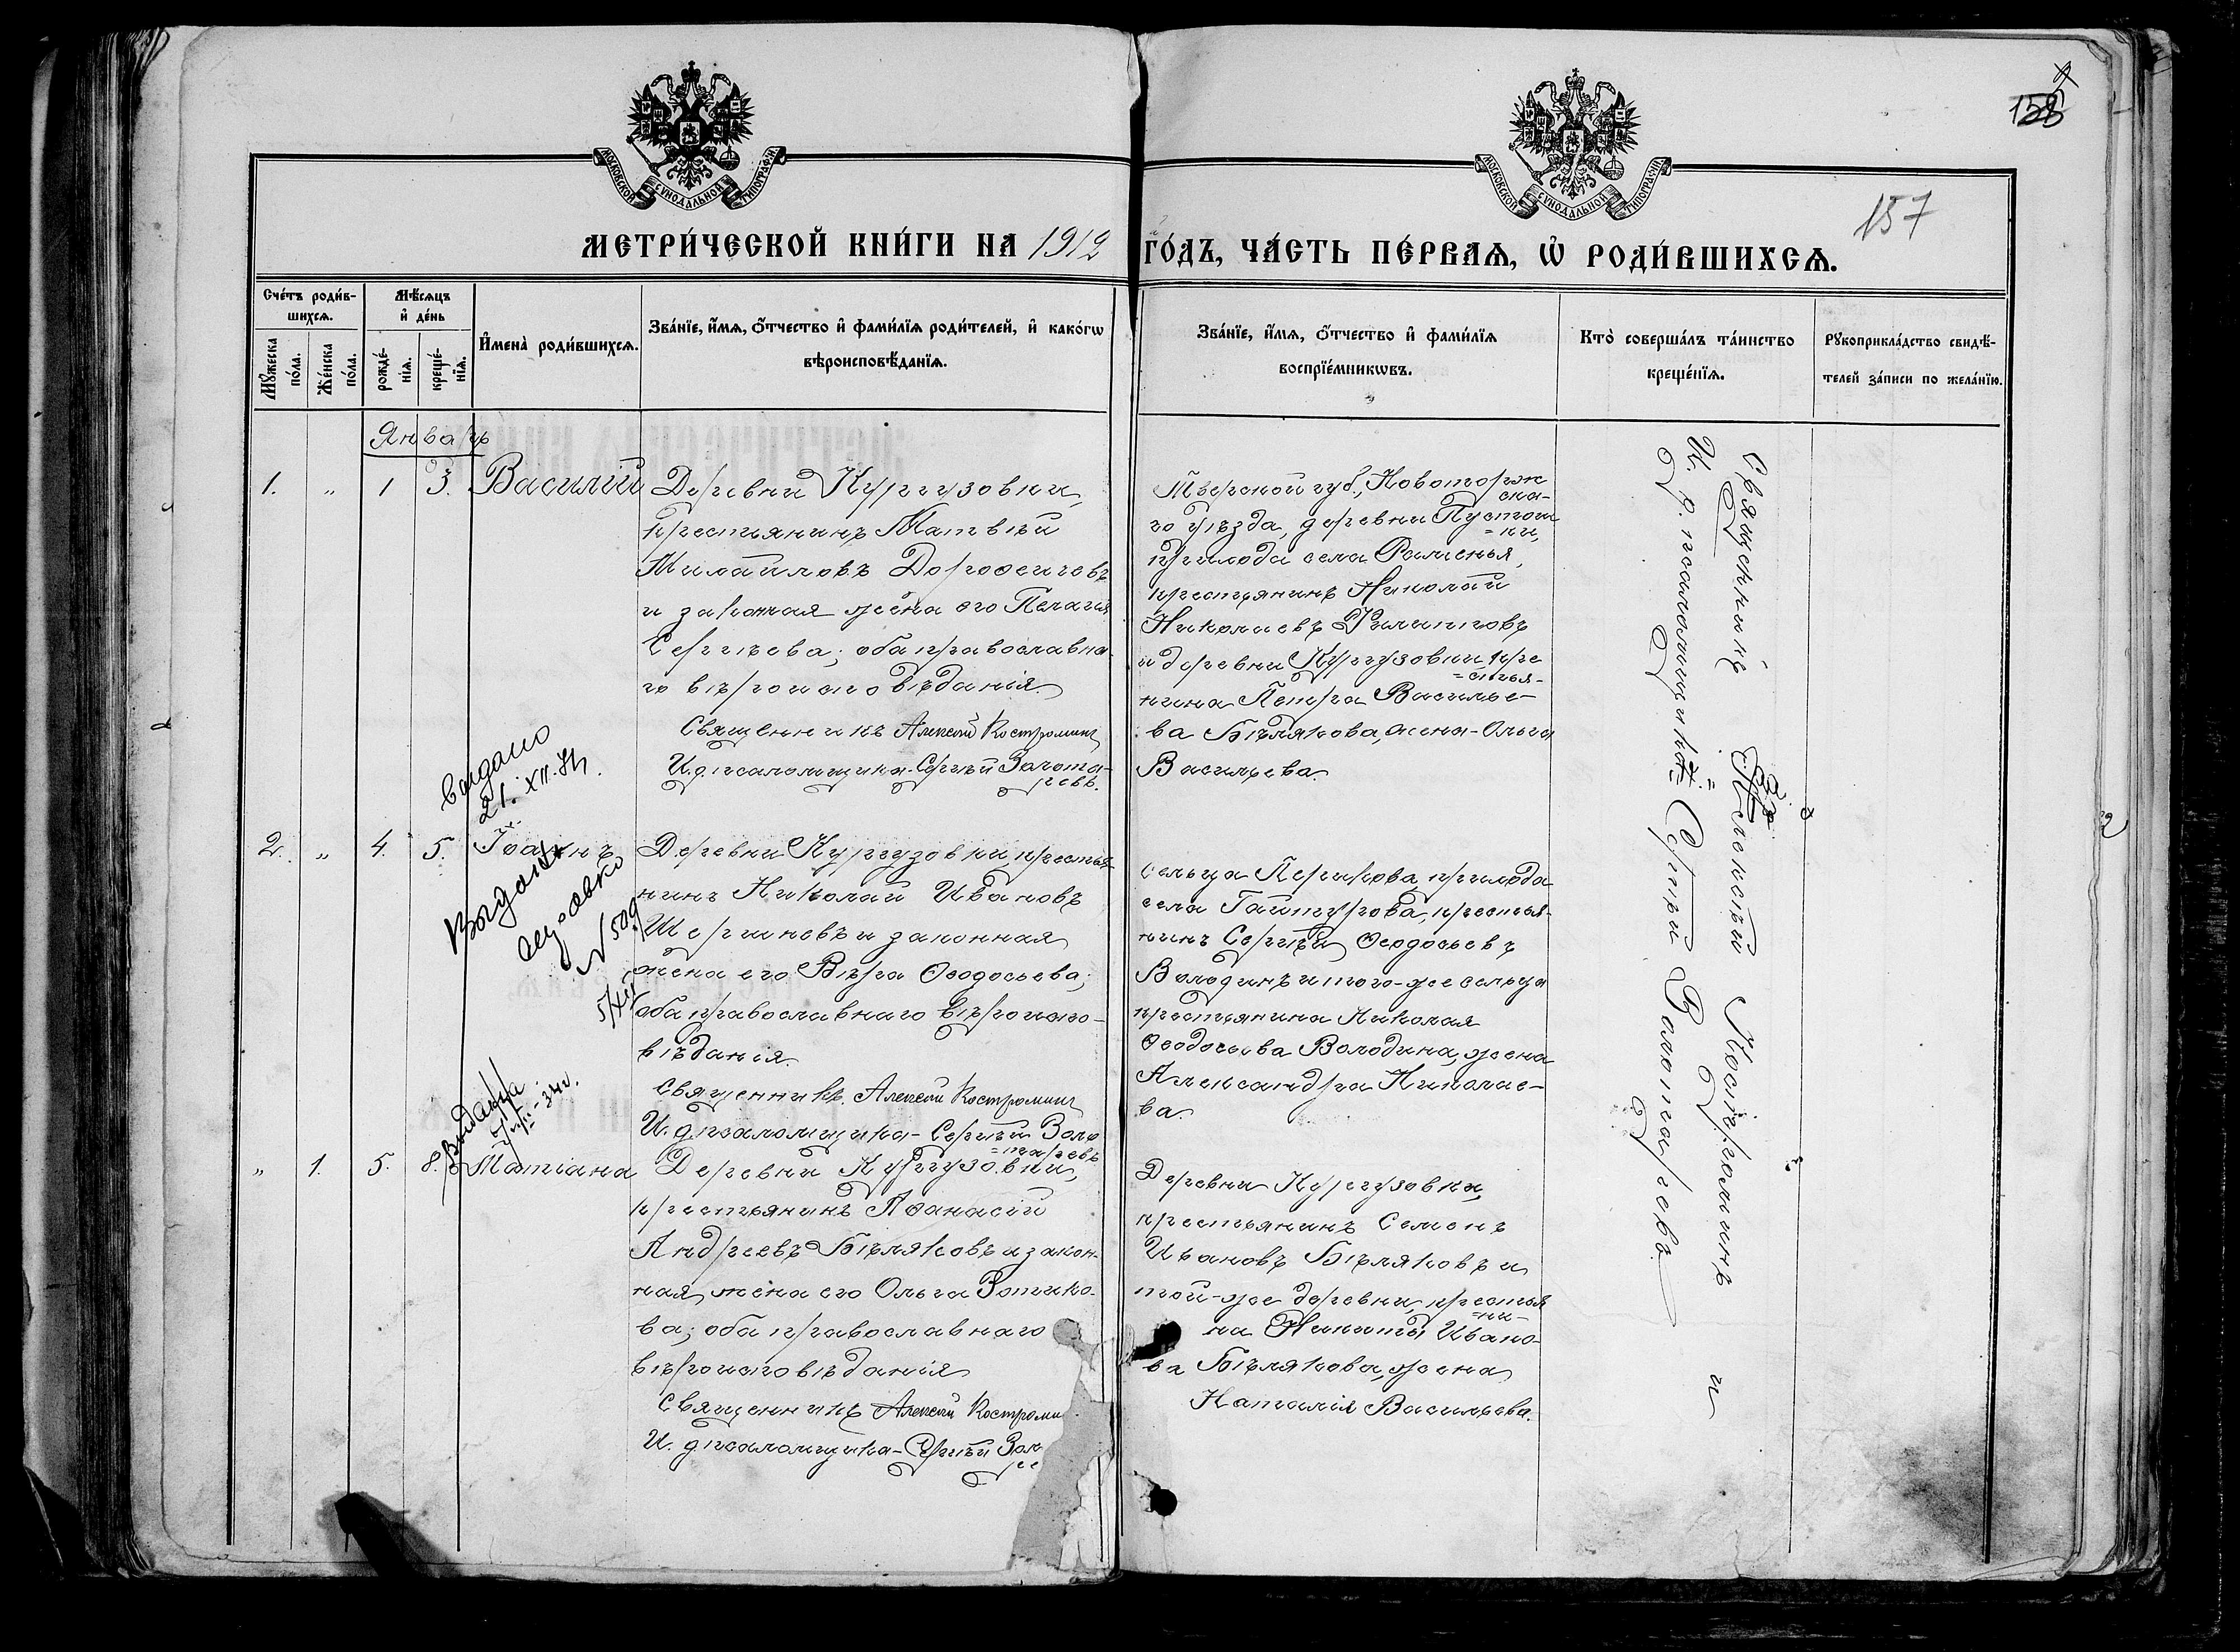 158
157
МОСКОВСКОЙ СѴНОДАЛЬНОЙ ТИПОГРАФІИ
МОСКОВСКОЙ СѴНОДАЛЬНОЙ ТИПОГРАФІИ
МЕТРИ́ЧЕСКОЙ КНИ́ГИ НА 1912 ГО́ДЪ, ЧА́СТЬ ПЕ́РВАѦ, Ѡ҆ РОДИ́ВШИХСѦ.
Сче́тъ роди́в-
шихсѧ.
Мꙋ́жеска
по́ла.
Же́нска
по́ла.
Мѣ́сѧцъ
и҆ де́нь
рожде́-
нїѧ.
креще́-
нїѧ.
И҆мена̀ роди́вшихсѧ.
Зва́нїе, и҆́мѧ, ѻ҆́тчество и҆ фами́лїѧ роди́телей, и҆ како́гѡ
вѣроисповѣ́данїѧ.
Зва́нїе, и҆́мѧ, ѻ҆́тчество и҆ фами́лїѧ
воспрїе́мникѡвъ.
Кто̀ соверша́лъ та́инство
креще́нїѧ.
Рꙋкоприкла́дство свидѣ́-
телей за́писи по жела́нїю.
Январь
1. " 1 3. Василій
Деревни Кургузовки,
крестьянинъ Матвѣй
Михайловъ Дорофеичевъ
и законная жена его Пелагія
Сергѣева; оба православна-
го вѣроисповѣданія.
Священникъ Алексѣй Костроминъ
И. д. псаломщика-Сергѣй Золота-
ревъ.
Тверской губ., Новоторж
ска-
го уѣзда, деревни Пустош
=ки,
прихода села Раменья,
крестьянинъ Николай
Николаевъ Филипповъ
и деревни Кургузовки, кре
=стья-
нина Петра Василье-
ва Бѣлякова, жена-Ольга
Васильева.
выдано
21. XII.
2. " 4. 5. Іоаннъ
Выдана
N 509
5/XII
Деревни Кургузовки, крестья-
нинъ Николай Ивановъ
Шершневъ и законная
жена его Вѣра Ѳеодосьева;
оба православнаго вѣроиспо-
вѣданія.
Священникъ Алексѣй Костроминъ
И. д. псаломщика-Сергѣй Золо
=таревъ
сельца Перикова, прихода
села крестья-
нинъ Сергѣй Ѳеодосьевъ
Володинъ и того-же сельца
крестьянина Николая
Ѳеодосьева Володина, жена
Александра Николае-
ва.
Выдана
" 1. 5. 8. Татіана
Деревни Кургузовки,
крестьянинъ Аѳанасій
Андреевъ Бѣляковъ и закон-
ная жена его Ольга Зотико-
ва; оба православнаго
вѣроисповѣданія
Священникъ Алексѣй Костроми
И. д. псаломщика-Сергѣй Зол
Деревни Кургузовки,
крестьянинъ Семенъ
Ивановъ Бѣляковъ и
той-же деревни, крестья
=ни-
на Никиты Ивано-
ва Бѣлякова, жена
Наталія Васильева.
Священникъ Алексѣй Костроминъ и
И. д. псаломщика Сергѣй Золотаревъ.